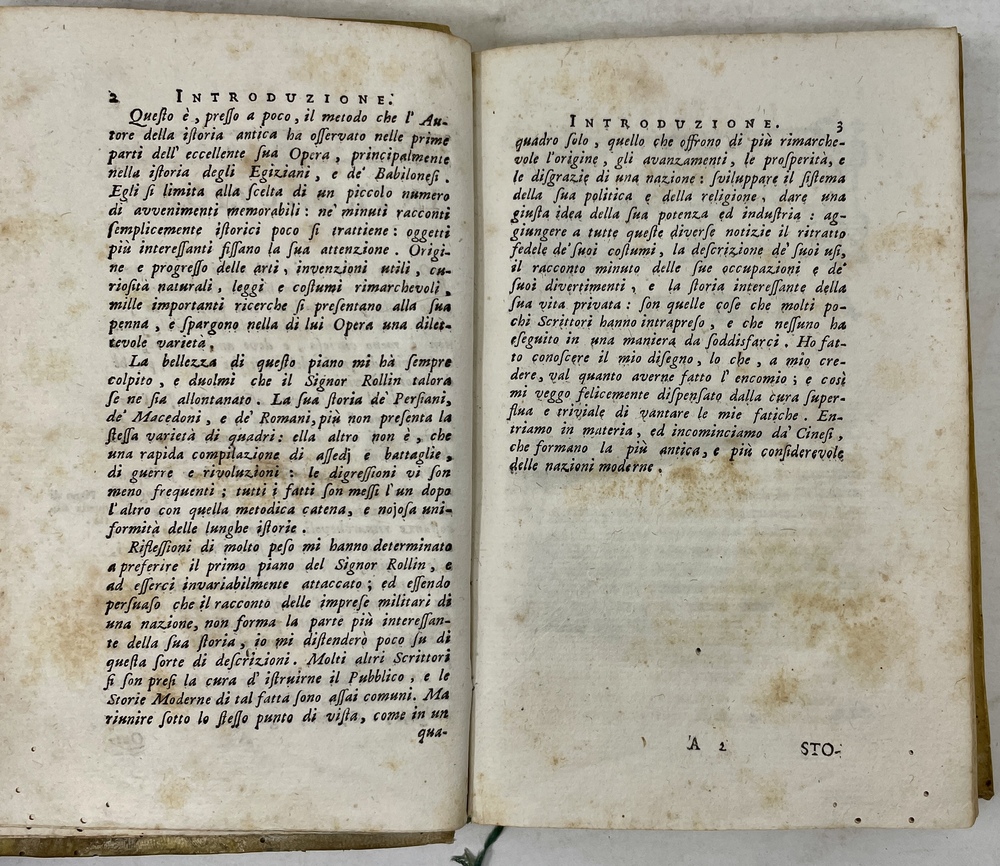 2 INTRODUZIONE.
Queſto è, preſſo a poco, il metodo che l' Au-
tore della iſtoria antica ha oſſervato nelle prime
parti dell' eccellente ſua Opera, principalmente
nella iſtoria degli Egiziani, e de' Babiloneſi.
Egli ſi limita alla ſcelta di un piccolo numero
di avvenimenti memorabili: ne' minuti racconti
ſemplicemente iſtorici poco ſi trattiene: oggetti
più intereſſanti fiſſano la ſua attenzione. Origi-
ne e progreſſo delle arti, invenzioni utili, cu-
rioſità naturali, leggi e coſtumi rimarchevoli,
mille importanti ricerche ſi preſentano alla ſua
penna, e ſpargono nella di lui Opera una dilet-
tevole varietà.
La bellezza di queſto piano mi hà ſempre
colpito, e duolmi che il Signor Rollin talora
ſe ne ſia allontanato. La sua ſtoria de' Perſiani,
de' Macedoni, e de' Romani, più non preſenta la
ſteſſa varietà di quadri: ella altro non è, che
una rapida compilazione di aſſedj e battaglie,
di guerre e rivoluzioni: le digreſſioni vi ſon
meno frequenti; tutti i fatti ſon meſſi l'un dopo
l'altro con quella metodica catena, e nojoſa uni-
formità delle lunghe iſtorie.
Rifleſſioni di molto peſo mi hanno determinato
a preferire il primo piano del Signor Rollin, e
ad eſſerci invariabilmente attaccato; ed eſſendo
perſuaſo che il racconto delle impreſe militari di
una nazione, non forma la parte più intereſſan-
te della ſua ſtoria, io mi diſtenderò poco ſu di
queſta ſorte di deſcrizioni. Molti altri Scrittori
ſi ſon preſi la cura d' iſtruirne il Pubblico, e le
Storie Moderne di tal fatta ſono aſſai comuni. Ma
riunire ſotto lo ſteſſo punto di viſta, come in un
qua-
INTRODUZIONE. 3
quadro ſolo, quello che offrono di più rimarche-
vole l'origine, gli avanzamenti, le proſperità, e
le diſgrazie di una nazione: ſviluppare il ſiſtema
della ſua politica e della religione, dare una
giuſta idea della ſua potenza ed induſtria: ag-
giungere a tutte queſte diverſe notizie il ritratto
fedele de' ſuoi coſtumi, la deſcrizione de' ſuoi uſi,
il racconto minuto delle ſue occupazioni e de'
ſuoi divertimenti, e la ſtoria intereſſante della
ſua vita privata: ſon quelle coſe che molti po-
chi Scrittori hanno intrapreſo, e che neſſuno ha
eſeguito in una maniera da ſoddisfarci. Ho fat-
to conoſcere il mio diſegno, lo che, a mio cre-
dere, val quanto averne fatto l' encomio; e così
mi veggo felicemente diſpenſato dalla cura ſuper-
flua e triviale di vantare le mie fatiche. En-
triamo in materia, ed incominciamo da' Cineſi,
che formano la più antica, e più conſiderevole
delle nazioni moderne.
A 2 STO-